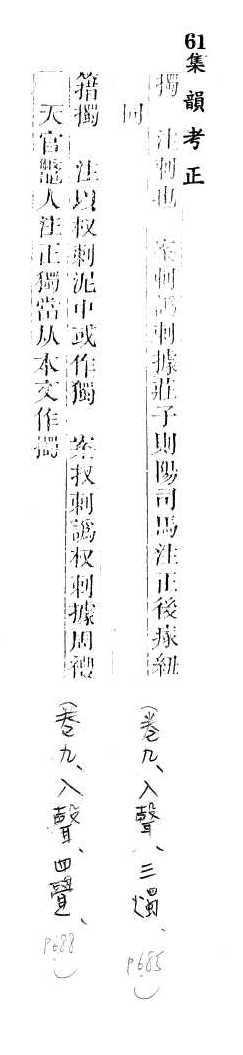 61集韻考正
擉 注刺也 案刺譌刺據莊子則陽司馬注正後瘃紐
同
簎擉 注以杈刺泥中或作獨 案扠刺譌杈刺據周禮
天官鼈人注正獨當从本文作擉
(卷九、入聲、三燭、p685)
(卷九、入聲、四覺、p688)